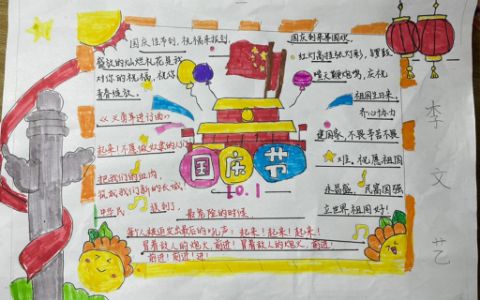 国庆佳节到,祝福来报到.
盛放的灿烂礼花是我
对你的祝福,祝你
青春绽放.
《义勇军进行曲》
起来!不愿做奴隶的人们!
把我们的血肉,
筑成我们新的长城!
中华民 到了,
最危险的时候,
被迫发出最后的吼声:起来!起来!起来!
冒着敌人的炮火,前进!冒着敌人的炮火,前进!
前进!前进!进!
国庆节
10.1
国庆到来普国欢,
红灯高挂
庆祝
祖国生日来.
齐心协力
建国家,不畏辛苦不畏
难,祝愿祖国
永昌盛,民富国强
立世界,祖国好!
李
文
艺